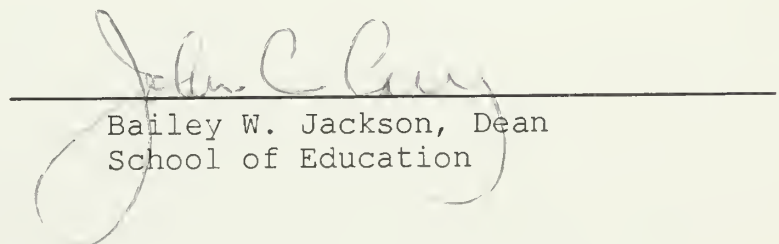 John C
Bailey W. Jackson, Dean
School of Education